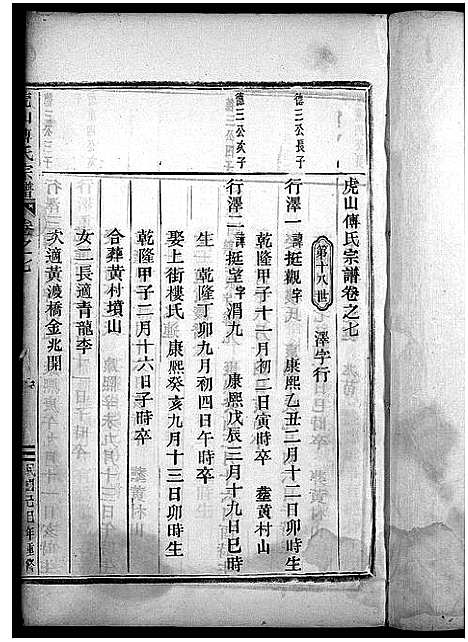 虎山傅氏宗譜卷之七
第十八世 澤字行
德三公長子
行澤一諱挺觀字 康熙乙丑二月十二日卯時生
乾隆甲子十一月初二日寅時卒 塟黄村山
德三公次子
行澤二諱挺望字渭九 康熙戊辰三月十九日巳時
生 乾隆丁卯九月初四日午時卒
娶上街樓氏 康熙癸亥九月十三日卯時生
乾隆甲子二月十六日子時卒
合葬黄村墳山
女二長適青龍李
次適黄渡橋金兆開
虎山傅氏宗譜 卷之七